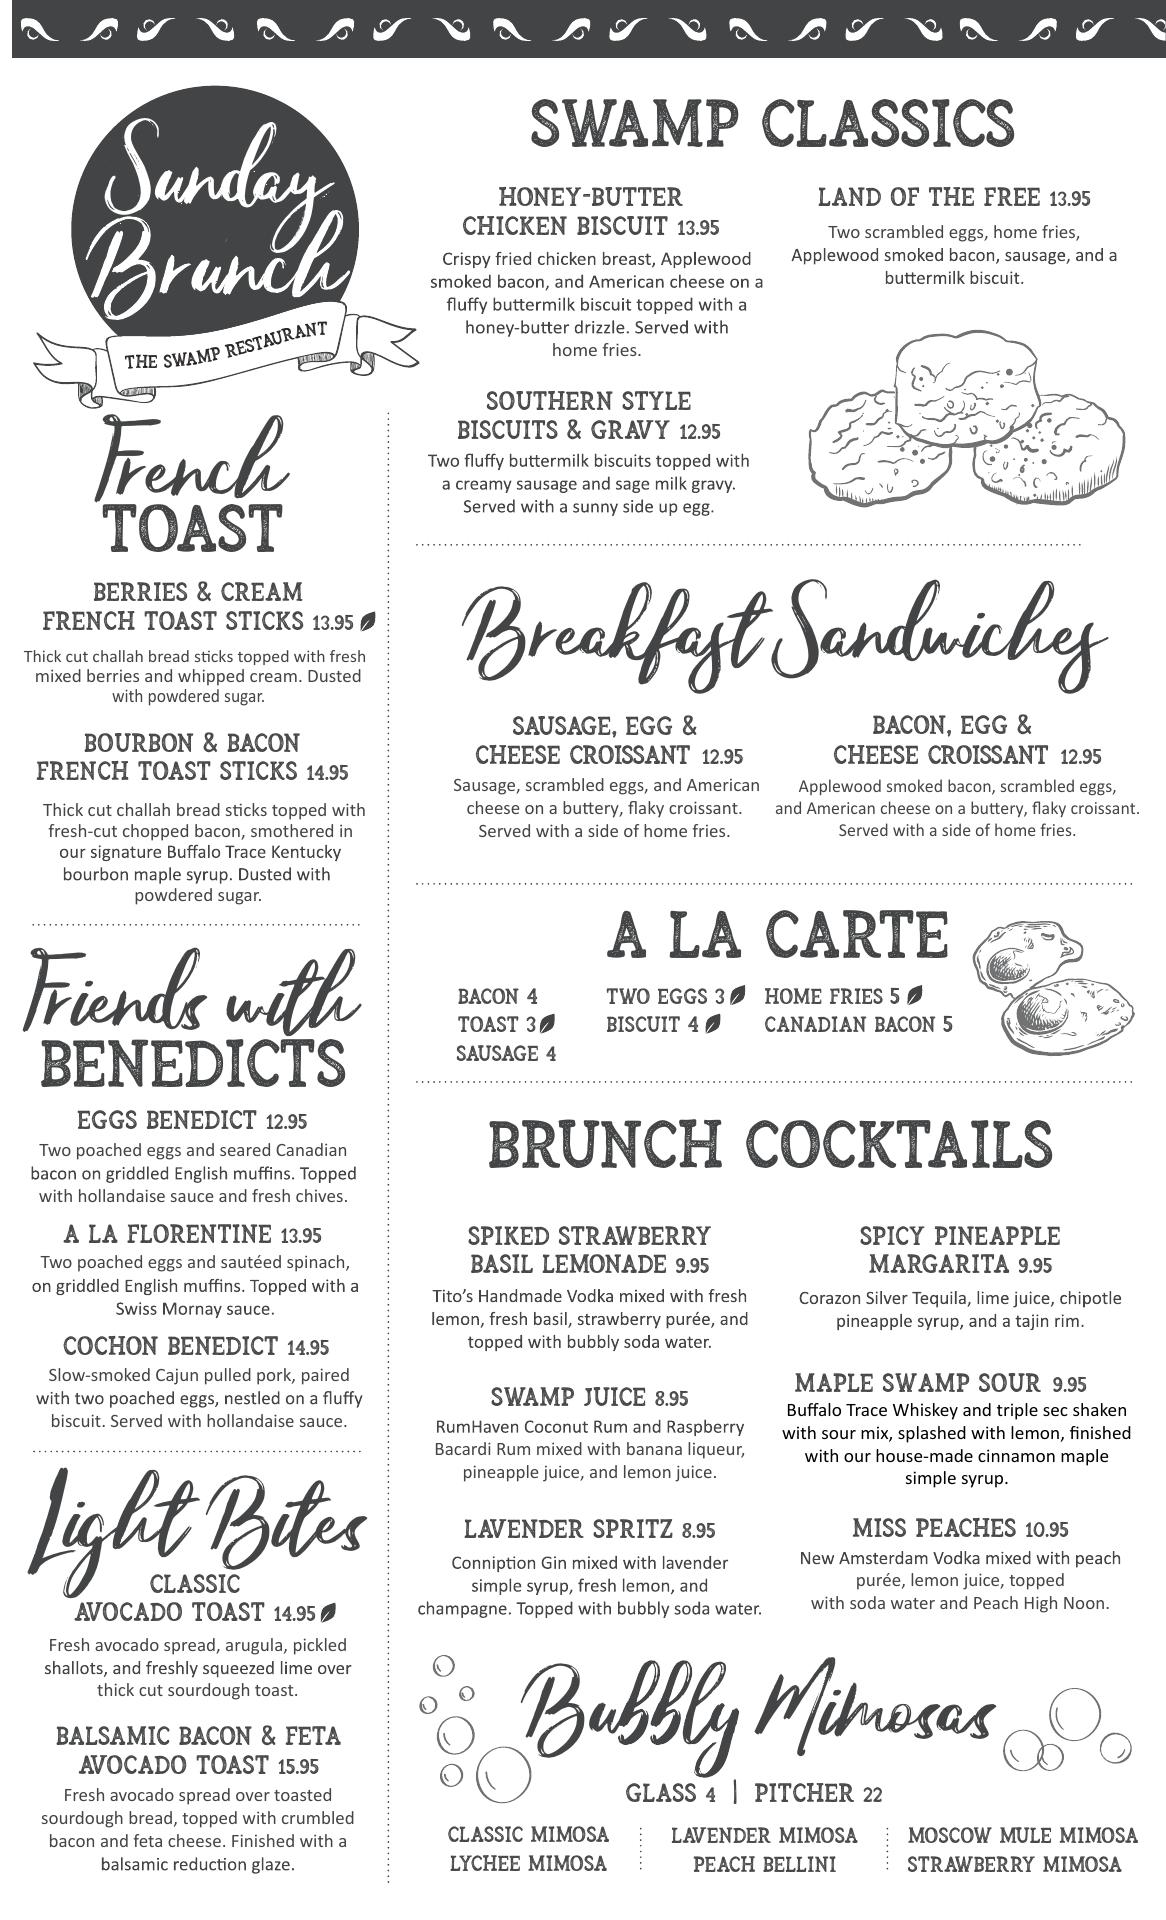 Sunday
Brunch
THE SWAMP RESTAURANT
French
TOAST
BERRIES & CREAM
FRENCH TOAST STICKS 13.95
Thick cut challah bread sticks topped with fresh
mixed berries and whipped cream. Dusted
with powdered sugar.
BOURBON & BACON
FRENCH TOAST STICKS 14.95
Thick cut challah bread sticks topped with
fresh-cut chopped bacon, smothered in
our signature Buffalo Trace Kentucky
bourbon maple syrup. Dusted with
powdered sugar.
Friends with
BENEDICTS
EGGS BENEDICT 12.95
Two poached eggs and seared Canadian
bacon on griddled English muffins. Topped
with hollandaise sauce and fresh chives.
A LA FLORENTINE 13.95
Two poached eggs and sautéed spinach,
on griddled English muffins. Topped with a
Swiss Mornay sauce.
COCHON BENEDICT 14.95
Slow-smoked Cajun pulled pork, paired
with two poached eggs, nestled on a fluffy
biscuit. Served with hollandaise sauce.
Light Bites
CLASSIC
AVOCADO TOAST 14.95
Fresh avocado spread, arugula, pickled
shallots, and freshly squeezed lime over
thick cut sourdough toast.
BALSAMIC BACON & FETA
AVOCADO TOAST 15.95
Fresh avocado spread over toasted
sourdough bread, topped with crumbled
bacon and feta cheese. Finished with a
balsamic reduction glaze.
SWAMP CLASSICS
HONEY-BUTTER
CHICKEN BISCUIT 13.95
Crispy fried chicken breast, Applewood
smoked bacon, and American cheese on a
fluffy buttermilk biscuit topped with a
honey-butter drizzle. Served with
home fries.
SOUTHERN STYLE
BISCUITS & GRAVY 12.95
Two fluffy buttermilk biscuits topped with
a creamy sausage and sage milk gravy.
Served with a sunny side up egg.
LAND OF THE FREE 13.95
Two scrambled eggs, home fries,
Applewood smoked bacon, sausage, and a
buttermilk biscuit.
Breakfast Sandwiches
SAUSAGE, EGG &
CHEESE CROISSANT 12.95
Sausage, scrambled eggs, and American
cheese on a buttery, flaky croissant.
Served with a side of home fries.
BACON, EGG &
CHEESE CROISSANT 12.95
Applewood smoked bacon, scrambled eggs,
and American cheese on a buttery, flaky croissant.
Served with a side of home fries.
A LA CARTE
BACON 4
TOAST 3
SAUSAGE 4
TWO EGGS 3
BISCUIT 4
HOME FRIES 5
CANADIAN BACON 5
BRUNCH COCKTAILS
SPIKED STRAWBERRY
BASIL LEMONADE 9.95
Tito's Handmade Vodka mixed with fresh
lemon, fresh basil, strawberry purée, and
topped with bubbly soda water.
SWAMP JUICE 8.95
RumHaven Coconut Rum and Raspberry
Bacardi Rum mixed with banana liqueur,
pineapple juice, and lemon juice.
LAVENDER SPRITZ 8.95
Conniption Gin mixed with lavender
simple syrup, fresh lemon, and
champagne. Topped with bubbly soda water.
SPICY PINEAPPLE
MARGARITA 9.95
Corazon Silver Tequila, lime juice, chipotle
pineapple syrup, and a tajin rim.
MAPLE SWAMP SOUR 9.95
Buffalo Trace Whiskey and triple sec shaken
with sour mix, splashed with lemon, finished
with our house-made cinnamon maple
simple syrup.
MISS PEACHES 10.95
New Amsterdam Vodka mixed with peach
purée, lemon juice, topped
with soda water and Peach High Noon.
Bubbly Mimosas
GLASS 4 | PITCHER 22
CLASSIC MIMOSA
LYCHEE MIMOSA
LAVENDER MIMOSA
PEACH BELLINI
MOSCOW MULE MIMOSA
STRAWBERRY MIMOSA